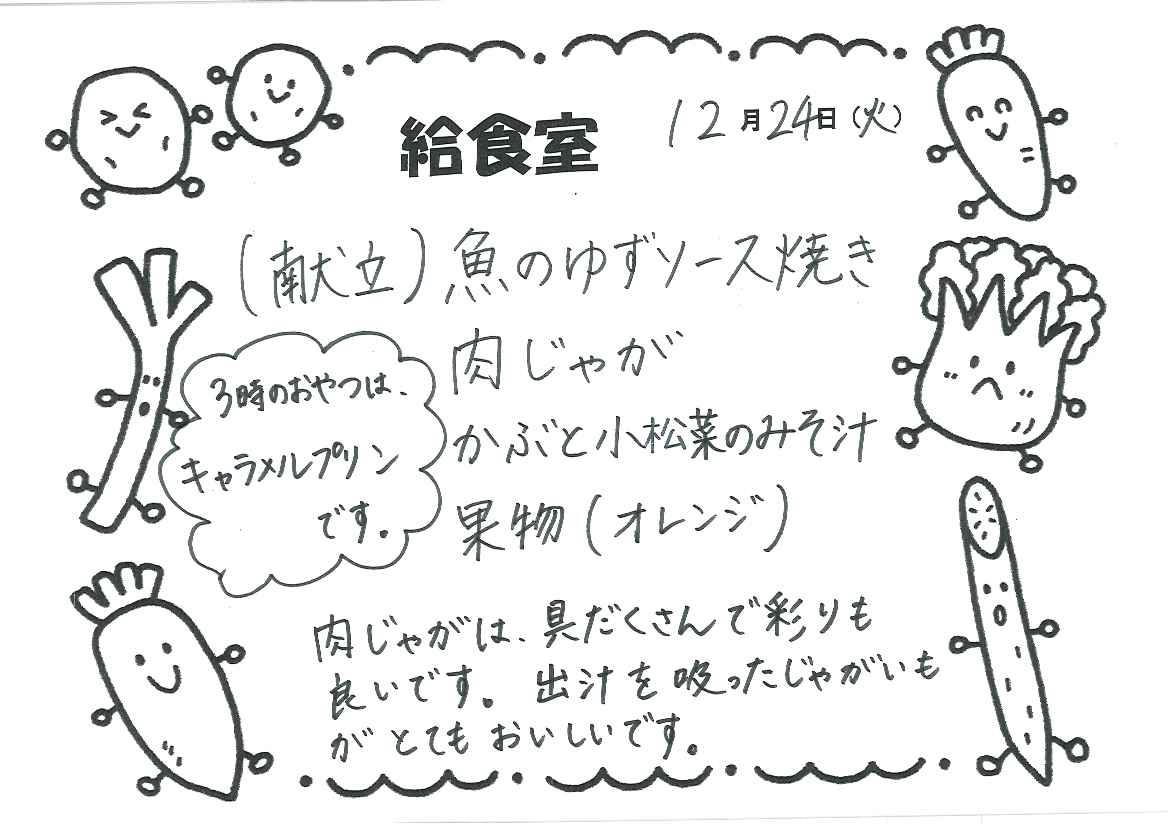 給食室
12月24日(火)
(献立)魚のゆずソース焼き
肉じゃが
かぶと小松菜のみそ汁
果物(オレンジ)
3時のおやつは、
キャラメルプリン
です。
肉じゃがは、具だくさんで彩りも
良いです。出汁を吸ったじゃがいも
がとてもおいしいです。